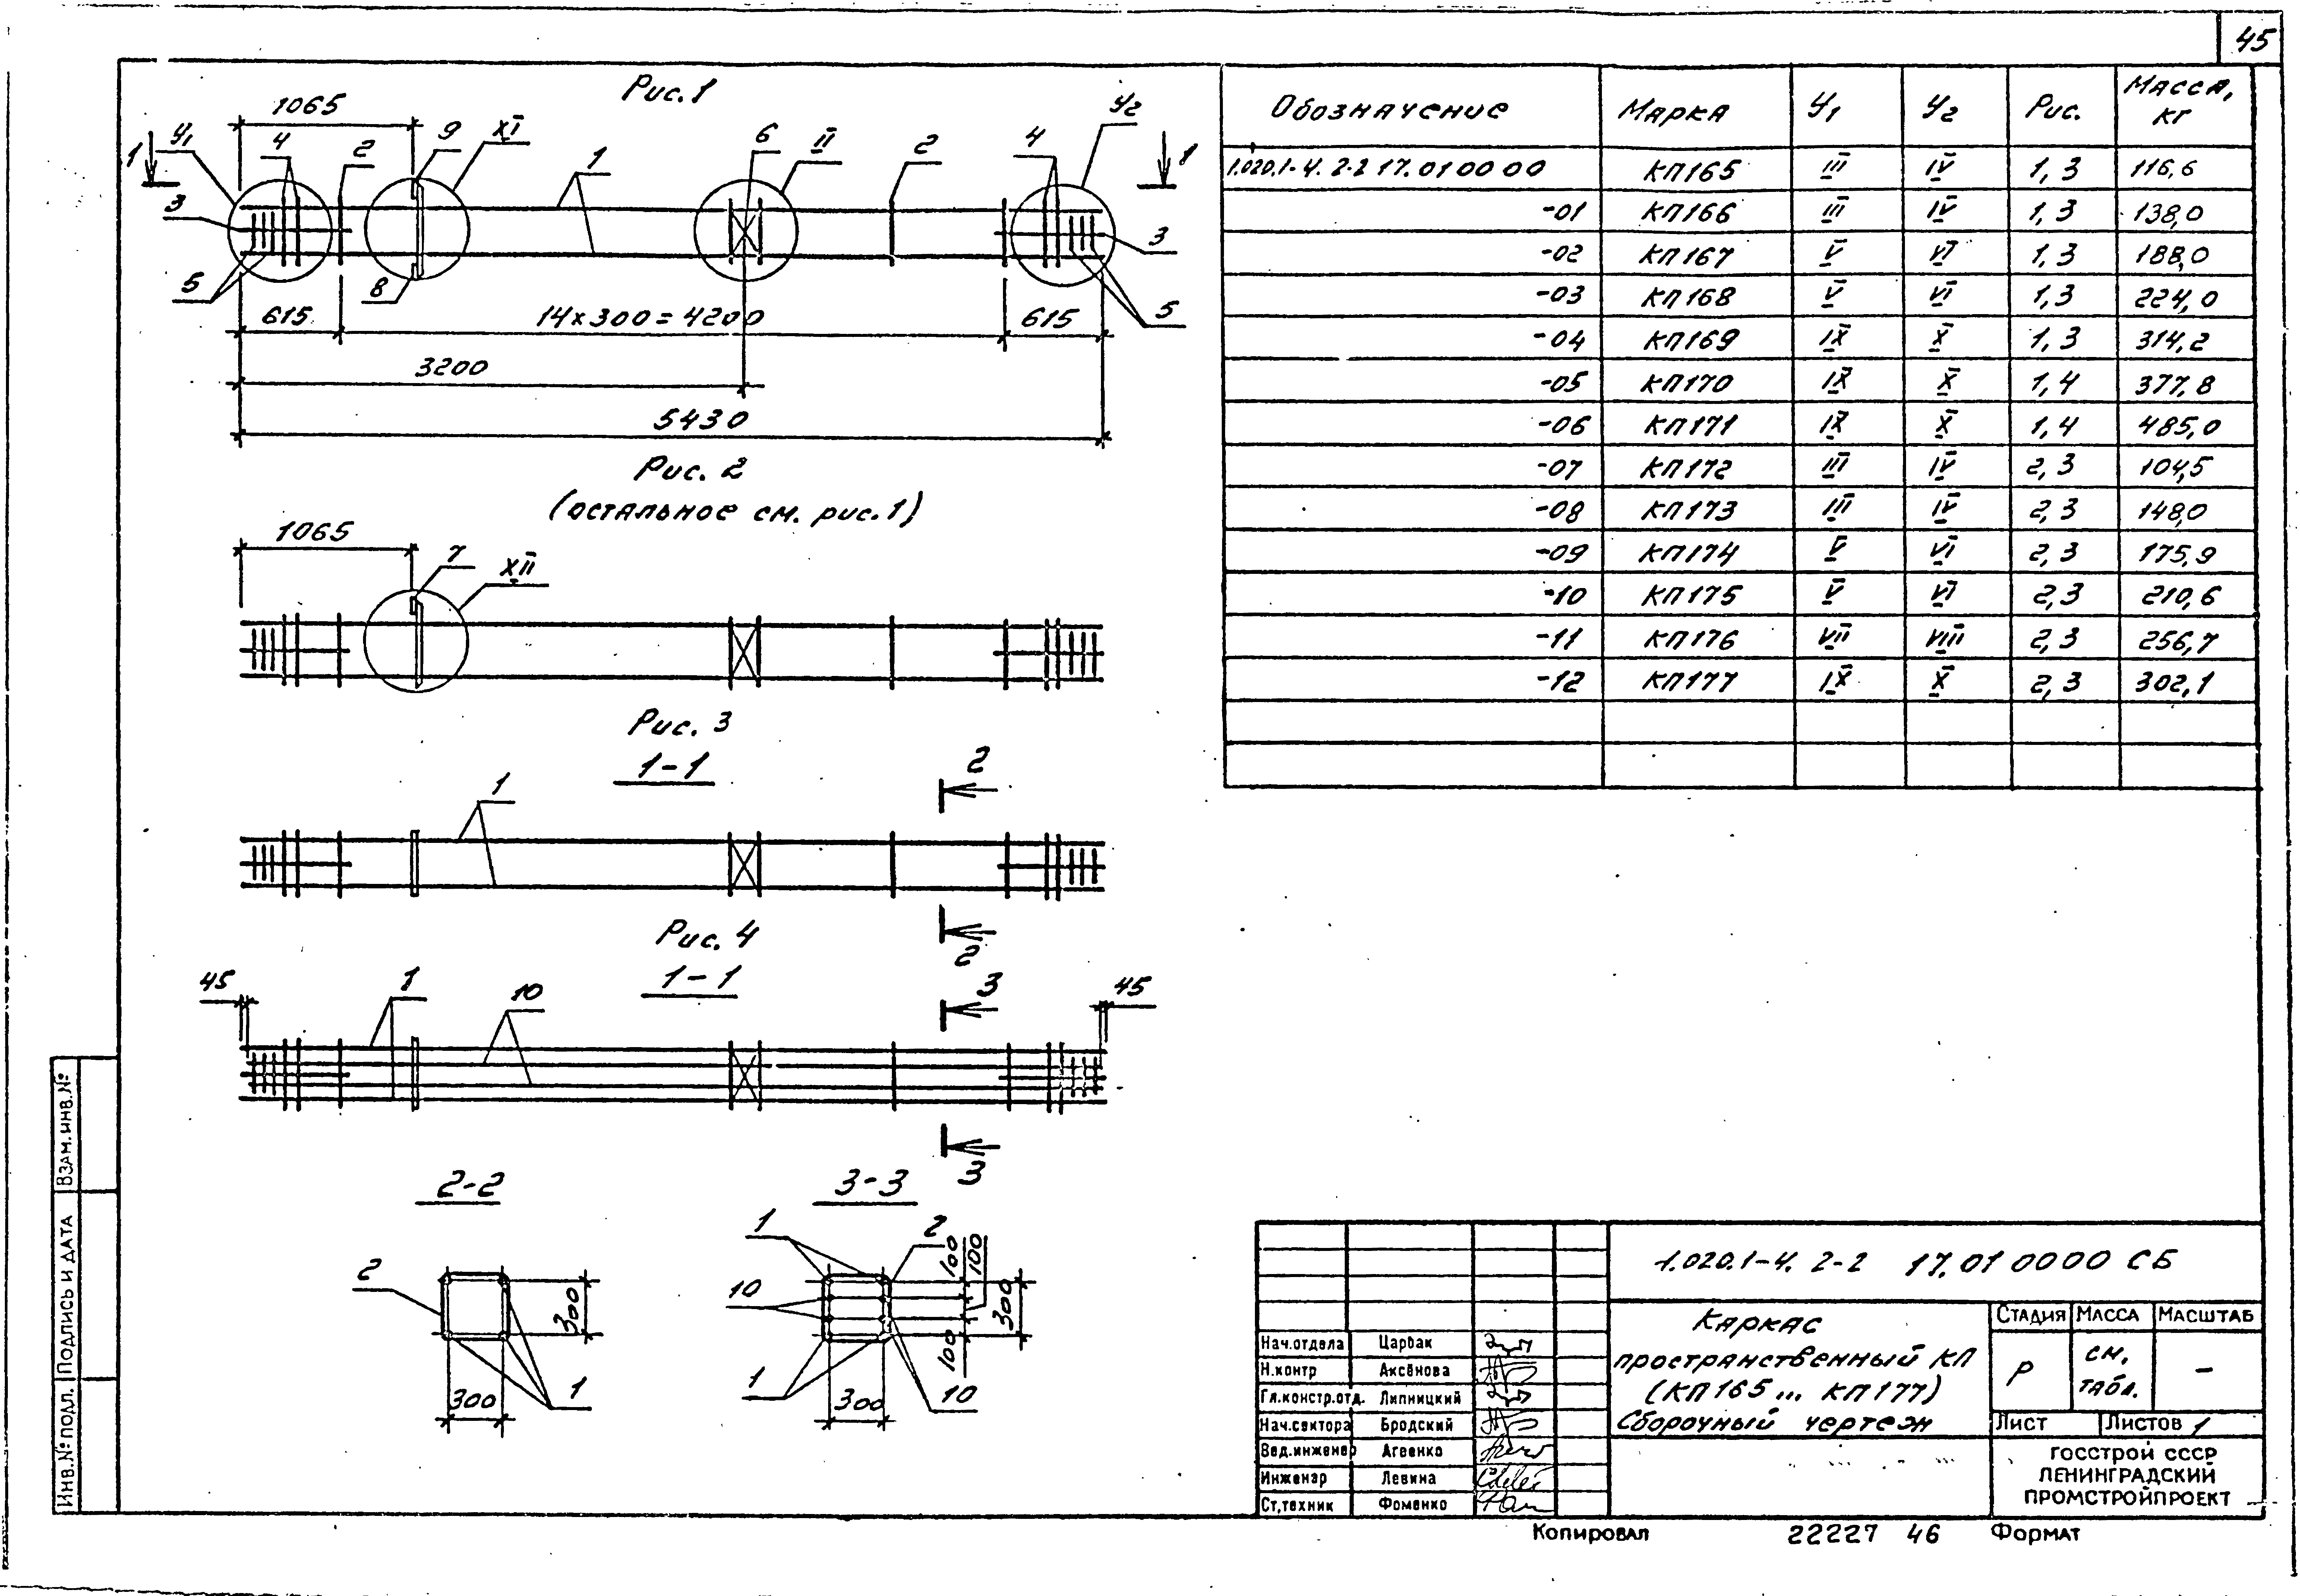 45
Рис.1
1065
У1
4
2
9
XI
1
6
II
2
4
У2
1
1
3
3
5
8
5
615
14×300=4200
615
3200
5430
Рис. 2
(остальное см. рис.1)
1065
7
XII
Рис. 3
1-1
1
2
2
Рис. 4
1-1
45
1
10
3
45
3
2-2
3-3
2
300
300
1
1
2
10
100
100
300
100
1
300
10
Обозначение Марка У1 У2 Рис. Масса, кг
1.020.1-4. 2-2 17.01 00 00 КП165 III IV 1, 3 116,6
-01 КП166 III IV 1, 3 138,0
-02 КП167 V VI 1, 3 188,0
-03 КП168 V VI 1, 3 224,0
-04 КП169 IX X 1, 3 314,2
-05 КП170 IX X 1, 4 377,8
-06 КП171 IX X 1, 4 485,0
-07 КП172 III IV 2, 3 104,5
-08 КП173 III IV 2, 3 148,0
-09 КП174 V VI 2, 3 175,9
-10 КП175 V VI 2,3 210,6
-11 КП176 VII VIII 2, 3 256,7
-12 КП177 IX X 2, 3 302,1
1.020.1-4. 2-2 17.01 0000 СБ
Каркас
пространственный КП
(КП165... КП177)
Сборочный чертеж
Стадия Масса Масштаб
Р см. табл. -
Лист Листов 1
ГОССТРОЙ СССР
ЛЕНИНГРАДСКИЙ
ПРОМСТРОЙПРОЕКТ
Нач.отдела Царбак
Н.контр Аксёнова
Гл.констр.отд. Липницкий
Нач.сектора Бродский
Вед.инженер Агеенко
Инженер Левина
Ст.техник Фоменко
Взам.инв.№
Подпись и дата
Инв.№ подл.
Копировал 22227 46 Формат